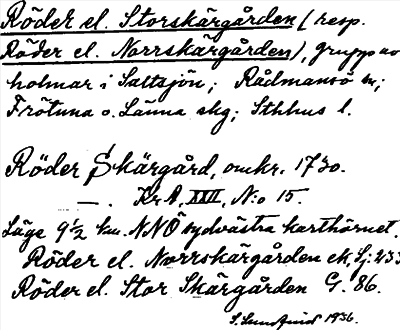 Röder el. Storskärgården (resp.
Röder el. Norrskärgården), grupp av
holmar i Saltsjön; Rådmansö sn;
Frötuna o. Länna skg; Sthlms l.
Röder Skärgård, omkr. 1730.
— . KrA, XXII, N:o 15.
Läge 9 1/2 km. NNÖ sydvästra karthörnet.
Röder el. Norrskärgården ek, Sj: 233
Röder el. Stor Skärgården G. 86.
1936.